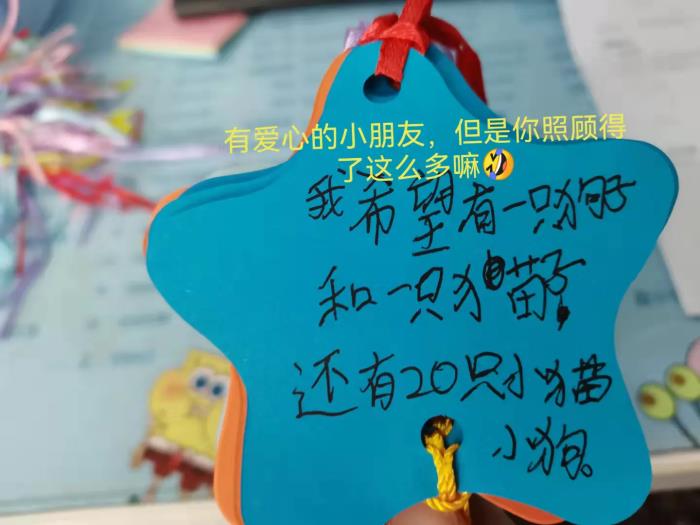 有爱心的小朋友，但是你照顾得
了这么多嘛🤣
我希望有一只狗子
和一只猫子，
还有20只小猫
小狗。